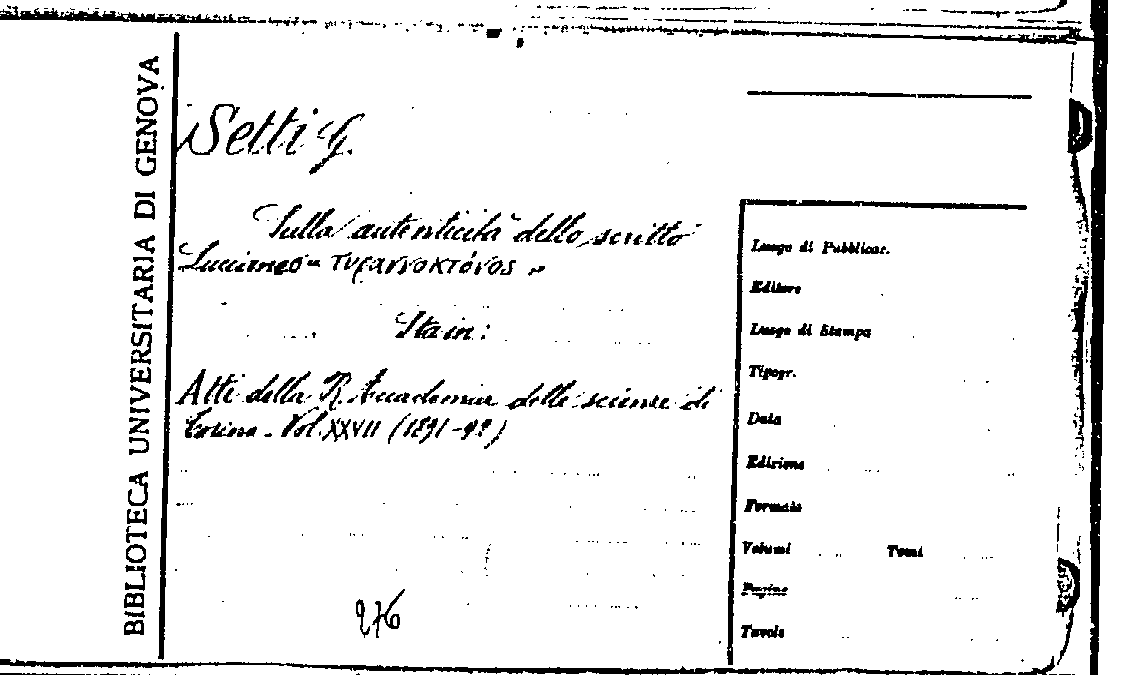 BIBLIOTECA UNIVERSITARIA DI GENOVA
Setti G.
Sulla autenticità dello scritto
Lucianeo "τυραννοκτόνος"
Sta in:
Atti della R. Accademia delle scienze di
Torino. Vol. XXVII (1891-92)
276
Luogo di Pubblicaz.
Editore
Luogo di Stampa
Tipogr.
Data
Edizione
Formato
Volumi Tomi
Pagine
Tavole